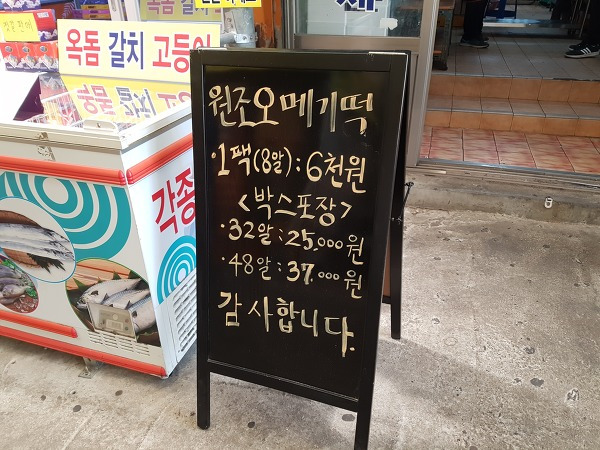 옥돔 갈치 고등어
각종
원조오메기떡
·1팩(8알):6천원
<박스포장>
·32알:25,000원
·48알:37,000원
감사합니다.